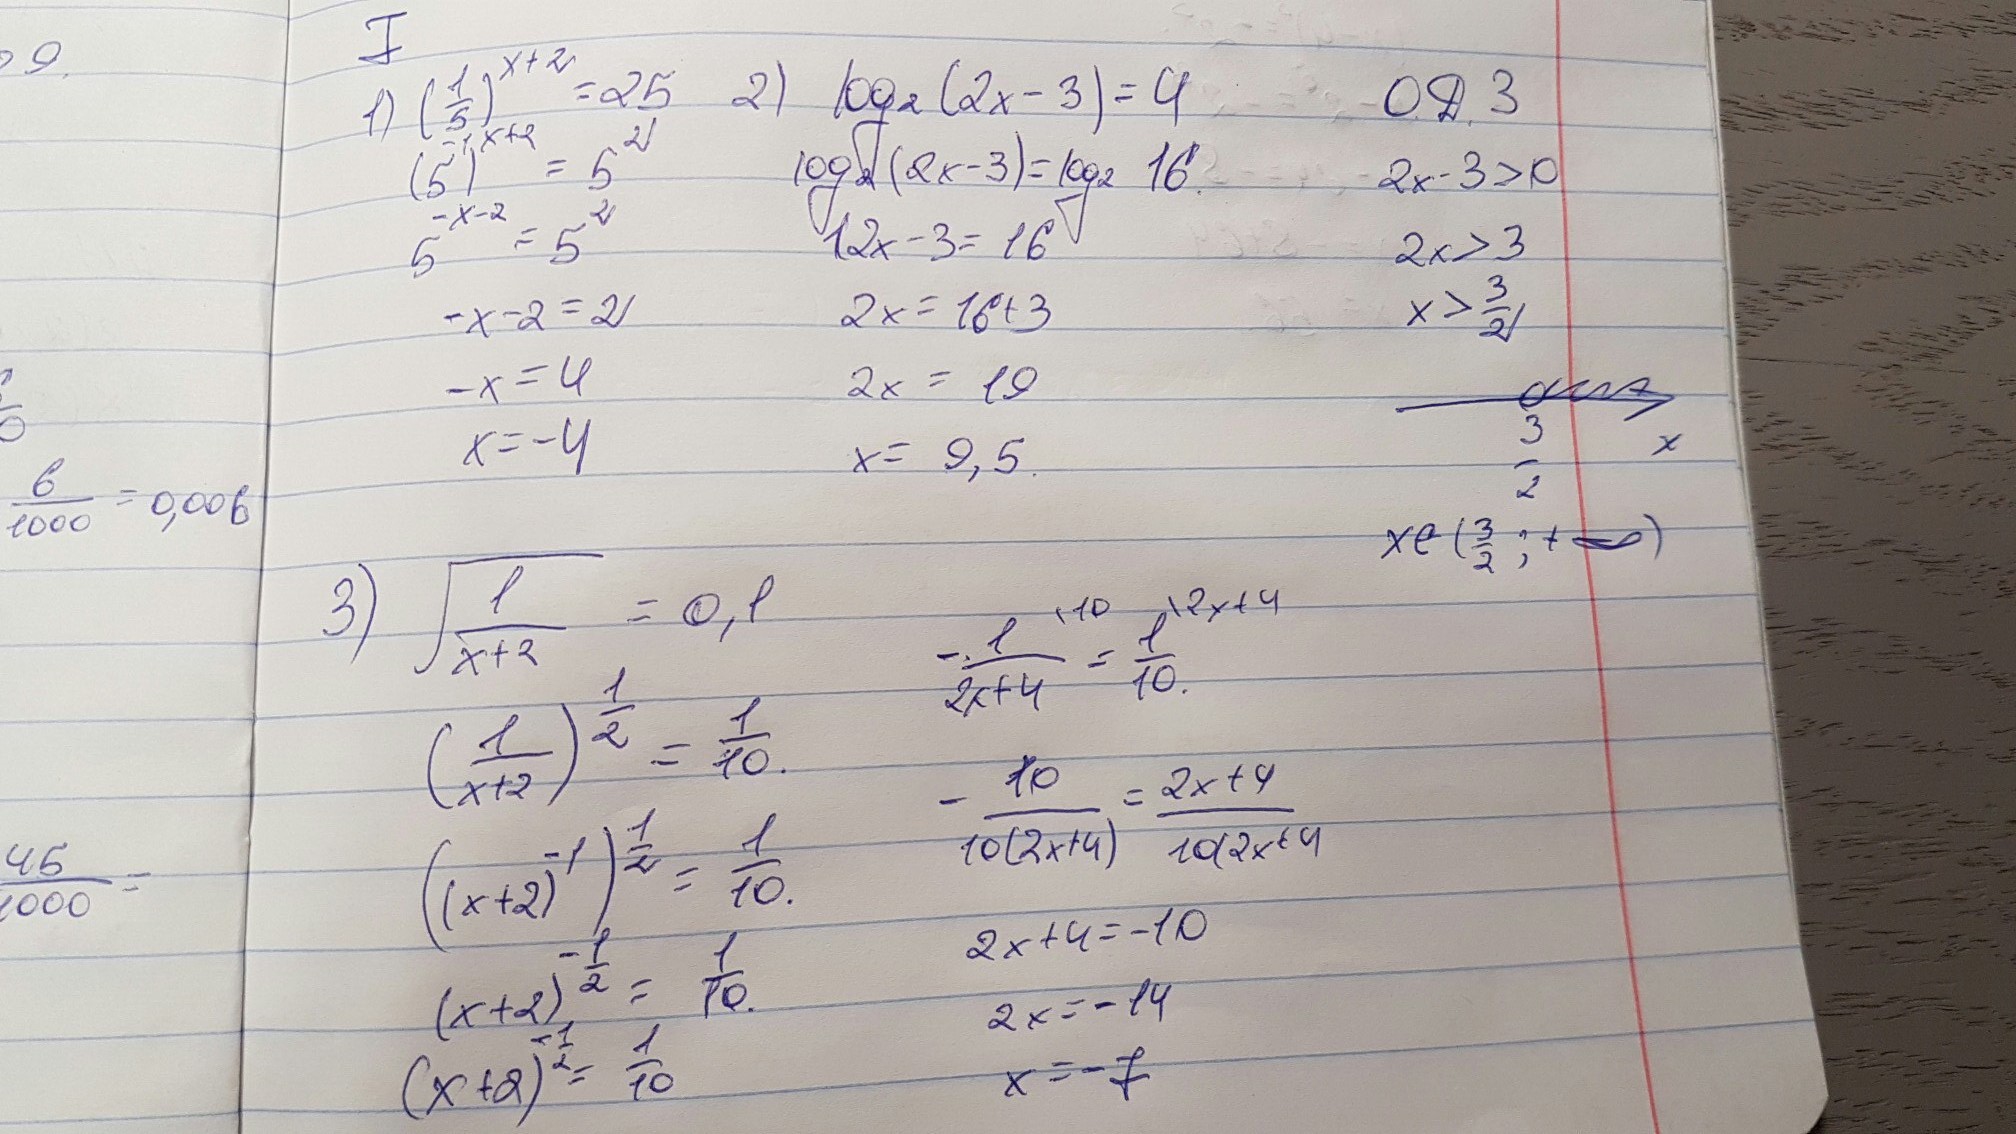 9.
6/1000 = 0,006
45/1000 =
I
1) (1/5)^(x+2) = 25
(5^(-1))^(x+2) = 5^2
5^(-x-2) = 5^2
-x-2 = 2
-x = 4
x = -4
2) log₂(2x-3) = 4
log₂(2x-3) = log₂ 16.
2x-3 = 16
2x = 16+3
2x = 19
x = 9,5.
О.Д.З
2x-3>0
2x>3
x > 3/2
3/2 x
x∈(3/2; +∞)
3) √(1/(x+2)) = 0,1
(1/(x+2))^(1/2) = 1/10.
((x+2)^(-1))^(1/2) = 1/10.
(x+2)^(-1/2) = 1/10.
(x+2)^(-1/2) = 1/10
-1/(2x+4) \10 = 1/10. \2x+4
-10/(10(2x+4)) = (2x+4)/(10(2x+4
2x+4 = -10
2x = -14
x = -7